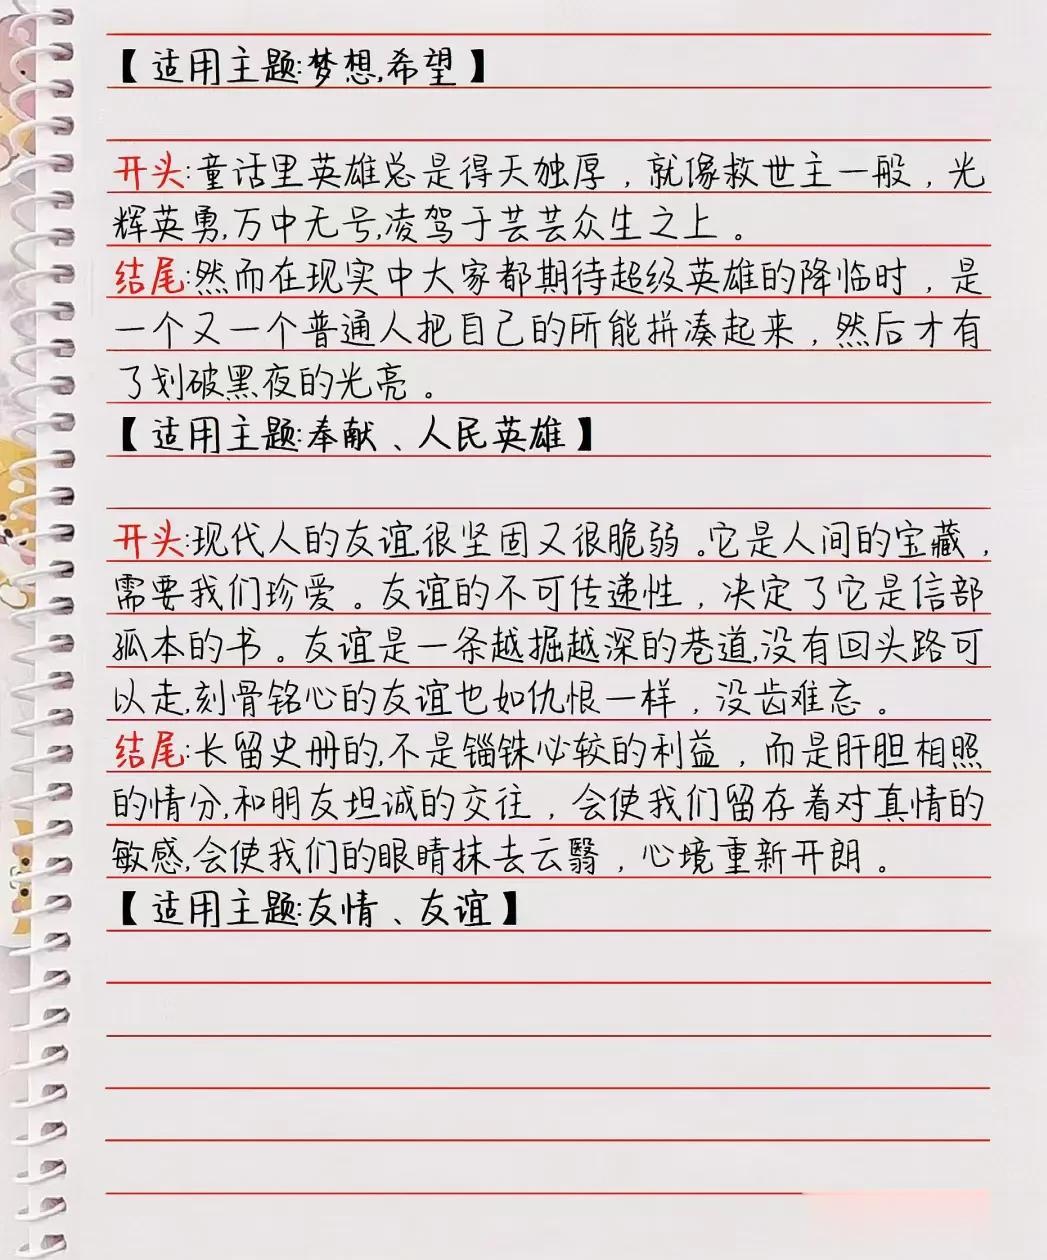 【适用主题:梦想,希望】
开头:童话里英雄总是得天独厚，就像救世主一般，光
辉英勇,万中无号,凌驾于芸芸众生之上。
结尾:然而在现实中大家都期待超级英雄的降临时，是
一个又一个普通人把自己的所能拼凑起来，然后才有
了划破黑夜的光亮。
【适用主题:奉献、人民英雄】
开头:现代人的友谊,很坚固又很脆弱。它是人间的宝藏，
需要我们珍爱。友谊的不可传递性，决定了它是信部
孤本的书。友谊是一条越掘越深的巷道,没有回头路可
以走,刻骨铭心的友谊也如仇恨一样，没齿难忘。
结尾:长留史册的,不是锱铢必较的利益，而是肝胆相照
的情分,和朋友坦诚的交往，会使我们留存着对真情的
敏感,会使我们的眼睛抹去云翳，心境重新开朗。
【适用主题:友情、友谊】